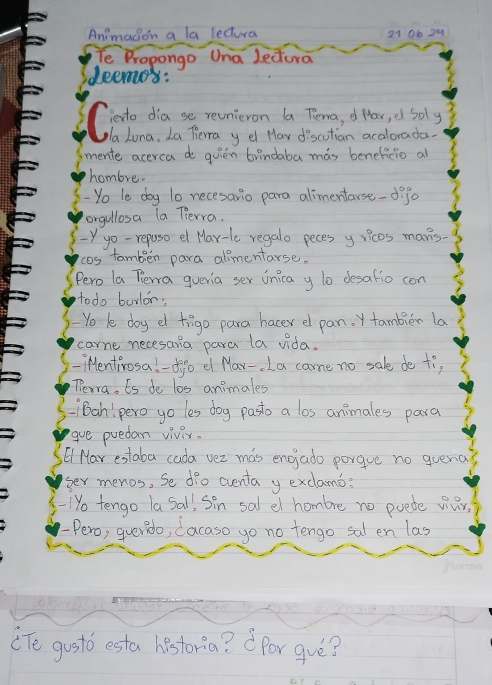 Animación a la lectura 21 06 24
Te Propongo Una Lectura
Leemos:
Cierto día se reunieron la Tierra, el Mar, el Sol y
la Luna. La Tierra y el Mar discutían acalorada-
mente acerca de quién brindaba más beneficio al
hombre.
-Yo le doy lo necesario para alimentarse-dijo
orgullosa la Tierra.
-Y yo-repuso el Mar-le regalo peces y ricos maris-
cos también para alimentarse.
Pero la Tierra quería ser única y lo desafío con
todo burlón:
-Yo le doy el trigo para hacer el pan. Y también la
carne necesaria para la vida.
-¡Mentirosa!-dijo el Mar-. La carne no sale de ti,
Tierra. Es de los animales
-¡Bah! pero yo les doy pasto a los animales para
que puedan vivir.
El Mar estaba cada vez más enojado porque no quería
ser menos. Se dio cuenta y exclamó:
-¡Yo tengo la Sal! Sin sal el hombre no puede vivir.
-Pero, querido, ¿acaso yo no tengo sal en las
Norma
¿Te gustó esta historia? ¿Por qué?